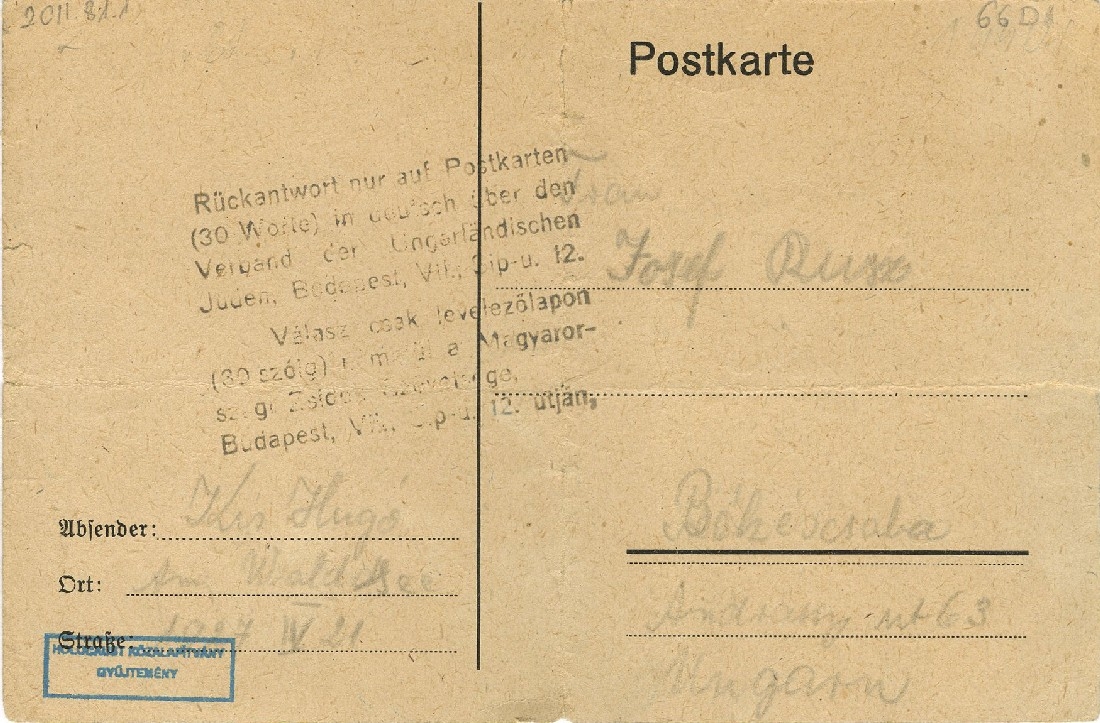 2011.81.1
66D1
Postkarte
Rückantwort nur auf Postkarten
(30 Worte) in deutsch über den
Verband der Ungarländischen
Juden, Budapest, VII., Sip-u. 12.
Válasz csak levelezőlapon
(30 szóig) németül a Magyaror-
szági Zsidók Szövetsége,
Budapest, VII., Sip-u. 12. utján,
Frau
Josef Rusz
Békéscsaba
Andrássy ut 63
Ungarn
Absender: Kis Hugó
Ort: Am Waldsee
Straße: 1927 IV 21.
HOLOCAUST KÖZALAPÍTVÁNY
GYŰJTEMÉNY